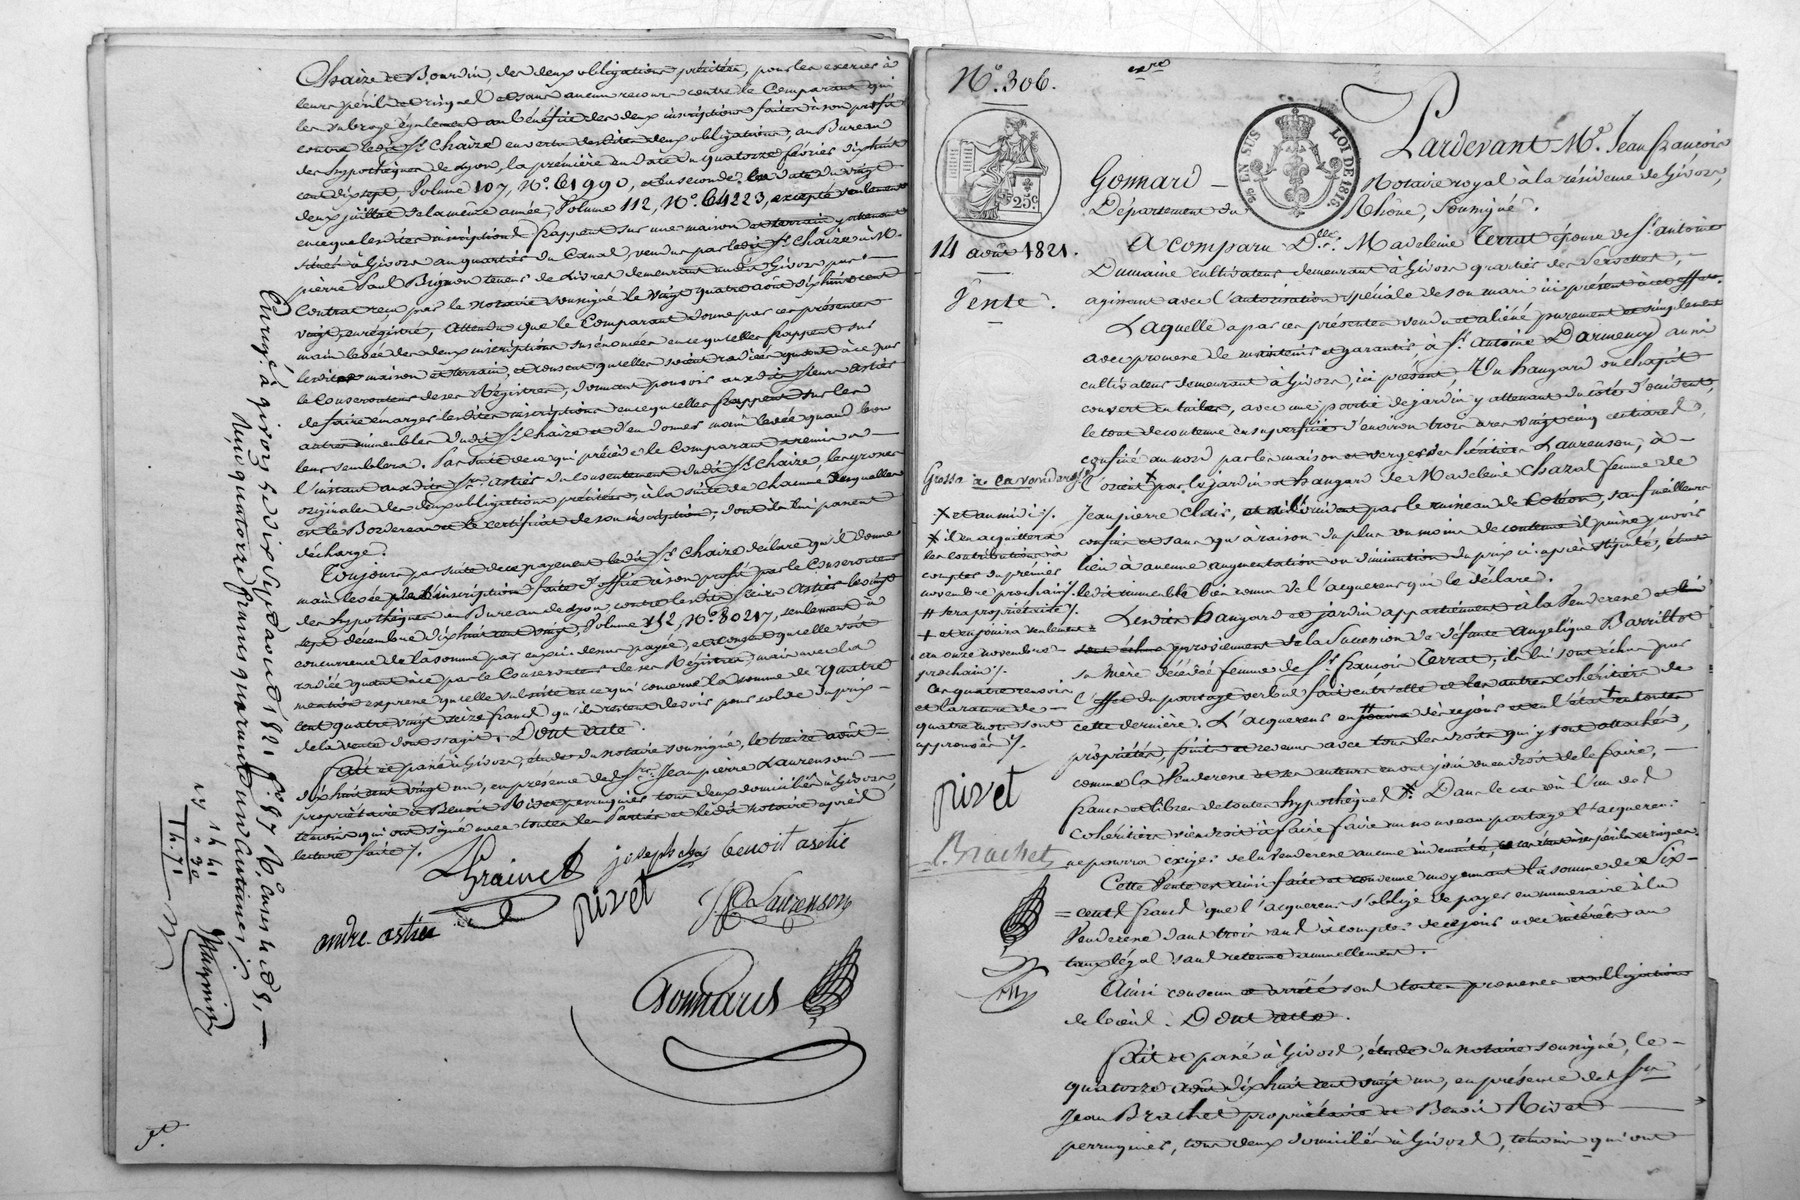 Chaize et Bourdin, des deux obligations précitées, pour les exercer à
leurs périls et risques et sans aucun recours contre le Comparant qui
les subroge également au bénéfice des deux inscriptions faites à son profit
contre ledit Sr. Chaize en vertu desdites deux obligations, au Bureau
des hypothèques de Lyon, la première en date du quatorze février dix huit
cent dix sept, Volume 107, No. 61990, et la seconde en date du vingt
deux juillet de la même année, Volume 112, No. 64223, excepté seulement
en ce que lesdites inscriptions frappent sur une maison et terrain y attenant
situés à Givors au quartier du Canal, vendus par ledit Sr. Chaize à M.
pierre Paul Bignon teneur de Livres demeurant audit Givors par
Contrat reçu par le notaire soussigné le vingt quatre août dix huit cent
vingt, enregistré, attendu que le Comparant donne par ces présentes
main levée des deux inscriptions susénoncées en ce qu'elles frappent sur
lesdits maison et terrain, et consent qu'elles soient radiées quant à ce par
le Conservateur de ses Régistres, donnant pouvoir auxdits Srs. Astier
de faire émarger lesdites inscriptions en ce qu'elles frappent sur les
autres immeubles dudit Sr. Chaize et d'en donner main levée quand bon
leur semblera. Par suite de ce qui précède le Comparant a remis à
l'instant auxdits Srs. Astier du consentement dudit Sr. Chaize, les grosses
originales des deux obligations précitées, à la suite de chacune desquelles
est le Bordereau et le certificat de son inscription, dont ils lui passent
décharge.
Toujours par suite de ce payement ledit Sr. Chaize déclare qu'il donne
main levée de l'inscription faite d'office à son profit par le Conservateur
des hypothèques au Bureau de Lyon contre lesdits Srs. Astier le vingt
sept décembre dix huit cent vingt, Volume 152, No. 80217, seulement à
concurrence de la somme par eux ci-dessus payée, et consent qu'elle soit
radiée quant à ce par le Conservateur de ses Régistres, mais avec la
mention expresse qu'elle subsiste en ce qui concerne la somme de quatre
cent quatre vingt seize francs qu'ils restent devoir pour solde du prix
de la vente dont s'agit. Dont acte.
Fait et passé à Givors, étude du notaire soussigné, le treize août
dix huit cent vingt un, en présence de Srs. Jean pierre Laurenson
propriétaire et Benoit Rivet perruquier tous deux domiciliés à Givors,
témoins qui ont signé avec toutes les Parties et ledit notaire après
lecture faite /.
joseph benoit astie
andre astier
rivet
JP Laurenson
Gonnard
Enregé. à givors le dix sept août 1821 fo. 87 Ro. cases
Reçu quatorze francs quarante un centimes.
14 41
1 30
No. 306.
14 août 1821.
Vente.
25 EN SUS
LOI DE 1816.
25c
Pardevant Me. Jean françois
Gonnard – Notaire royal à la résidence de Givors,
Département du Rhône, Soussigné.
A comparu Dlle. Madeleine Terrat épouse de Sr. antoine
Dumaine cultivateur demeurant à Givors quartier des
agissant avec l'autorisation spéciale de son mari ici présent à cet effet.
Laquelle a par ces présentes vendu et aliéné purement et simplement
avec promesse de maintenir et garantir à Sr. Antoine Darmency aussi
cultivateur demeurant à Givors, ici présent, Un hangard ou chapit
couvert en tuiles, avec une portion de jardin y attenant du côté d'occident,
le tout de contenue en superficie d'environ trois ares vingt cinq centiares,
confiné au nord par les maison et verger des héritiers Laurenson, à
l'orient + par le jardin et hangard de Madeleine Chazal femme de
Jean pierre et à l'occident par le ruisseau de Coteon, sauf meilleurs
confins et sans qu'à raison du plus ou moins de contenue il puisse y avoir
lieu à aucune augmentation ou diminution du prix ci-après stipulé,
ledit immeuble bien connu de l'acquereur qui le déclare.
Lesdits hangard et jardin appartiennent à la Venderesse et lui
proviennent de la Succession de défunte Angelique Barrillot
sa mère décédée femme de Sr. françois Terrat, ils lui sont échus par
l'effet du partage verbal fait entr'elle et les autres cohéritiers de
cette dernière. L'acquereur en jouira dès ce jour et en l'état + en toutes
propriétés, fruits et revenus avec tous les droits qui y sont attachés,
comme la Venderesse et ses auteurs en ont joui ou eu droit de le faire,
francs et libres de toutes hypothèques +. Dans le cas où l'un des
cohéritiers viendroit à faire faire un nouveau partage l'acquereur
ne pourra exiger de la venderesse aucune indemnité, ce contrat à ses périls et risques.
Cette Vente est ainsi faite et convenue moyennant la somme de Six
cents francs que l'acquereur s'oblige de payer en numéraire à la
Venderesse dans trois ans à compter de ce jour avec intérêts au
taux légal sans retenue annuellement.
Ainsi convenu et arrêté sous toutes promesses et obligations
de droit. Dont acte.
Fait et passé à Givors, étude du notaire soussigné, le
quatorze août dix huit cent vingt un, en présence de Srs.
Jean Brachet propriétaire et Benoit Rivet
perruquier, tous deux domiciliés à Givors, témoins qui ont
+ et au midi /.
+ il en acquittera
les contributions à
compter du premier
novembre prochain /.
# sera propriétaire /.
+ et en jouira seulement
au onze novembre
prochain /.
Ces quatre renvois
et la rature de
quatre mots sont
approuvés /.
rivet
J. Brachet